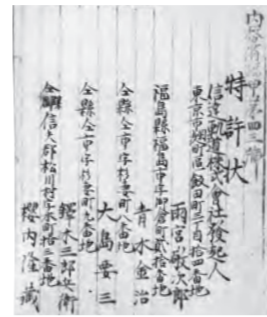 特許状
信達軌道株式會社發起人
東京市麹町區飯田町三丁目拾四番地
雨宮敬次郎
福島縣福島市字御倉町貳拾番地
青木重治
仝縣仝市字杉妻町八番地
大島要三
仝縣仝市字杉妻町九番地
鐸木三郎兵衛
仝縣信夫郡松川村字本町拾三番地
櫻内隆藏